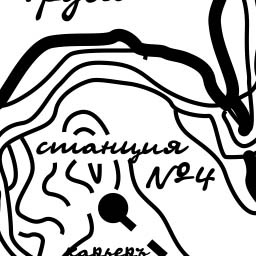 станция
№4
карьеръ